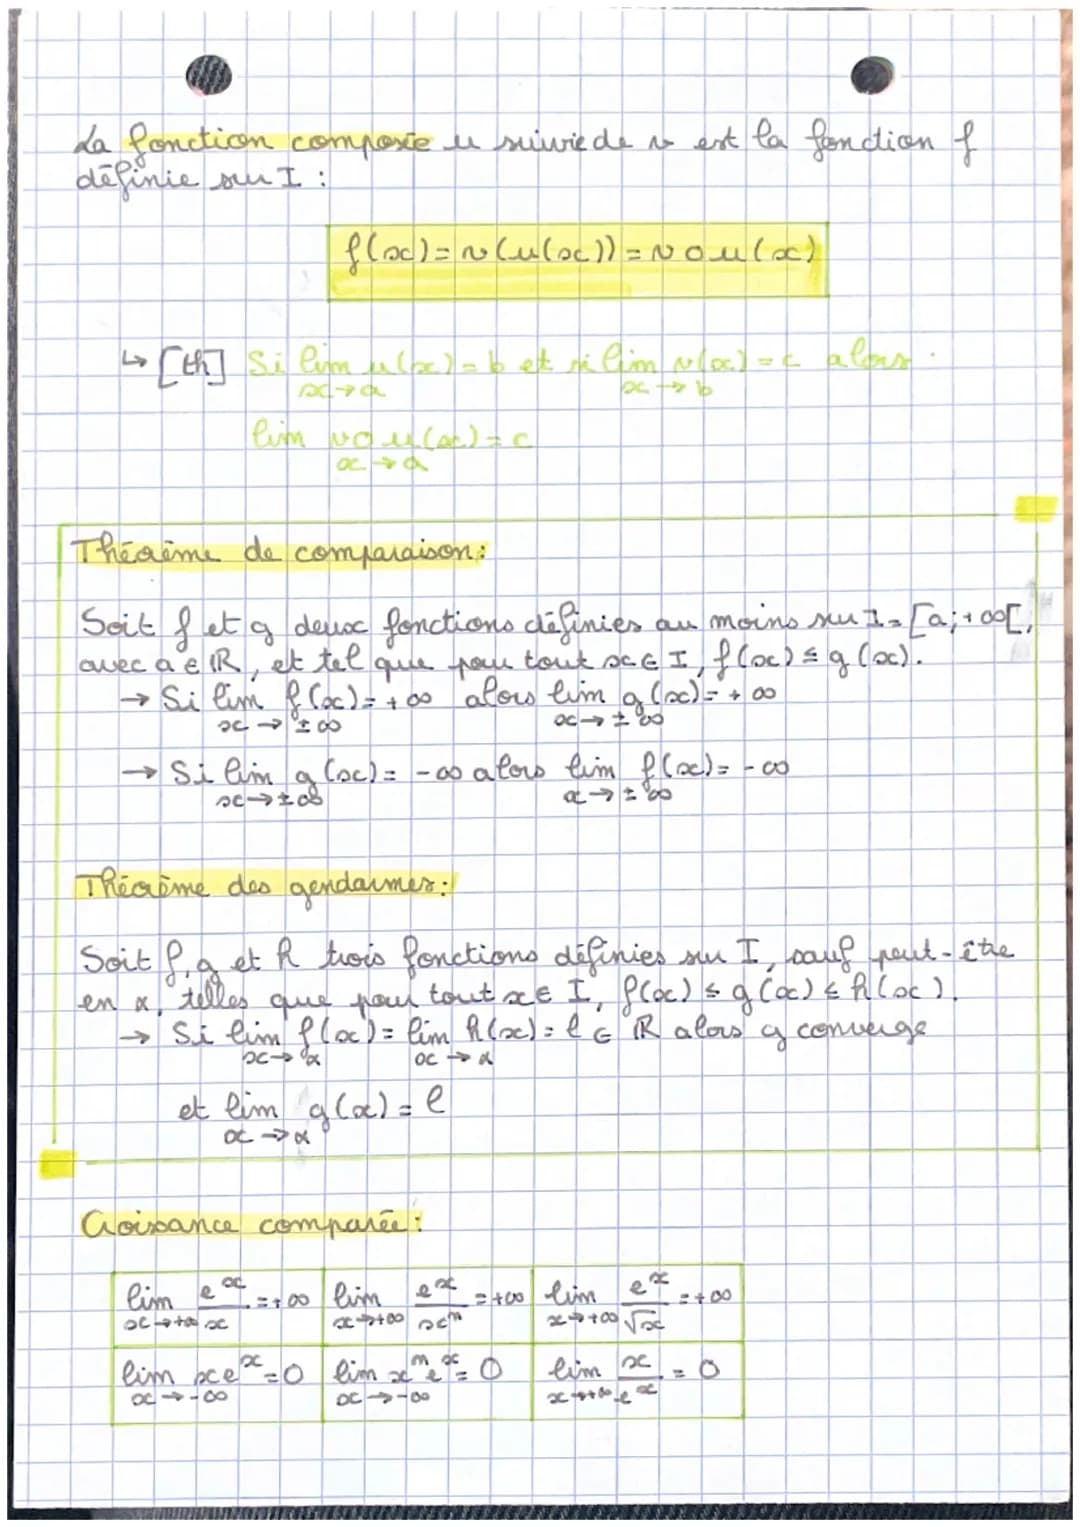 La fonction composée u suivie de v est la fonction f
définie sur I :
f(x) = v(u(x)) = v o u(x)
↳ [th] Si lim u(x) = b et si lim v(x) = c alors :
x→a x→b
lim v o u(x) = c
x→a
Théorème de comparaison :
Soit f et g deux fonctions définies au moins sur I = [a; +∞[,
avec a ∈ ℝ, et tel que pour tout x ∈ I, f(x) ≤ g(x).
→ Si lim f(x) = +∞ alors lim g(x) = +∞
x→±∞ x→±∞
→ Si lim g(x) = -∞ alors lim f(x) = -∞
x→±∞ x→±∞
Théorème des gendarmes :
Soit f, g et h trois fonctions définies sur I, sauf peut-être
en α, telles que pour tout x ∈ I, f(x) ≤ g(x) ≤ h(x).
→ Si lim f(x) = lim h(x) = l ∈ ℝ alors g converge
x→α x→α
et lim g(x) = l
x→α
Croissance comparée :
lim e^x/x = +∞ lim e^x/x^n = +∞ lim e^x/√x = +∞
x→+∞ x→+∞ x→+∞
lim xe^x = 0 lim x^n e^x = 0 lim x/e^x = 0
x→-∞ x→-∞ x→+∞